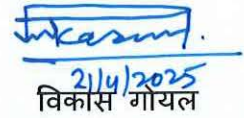 21/4/2025
विकास गोयल